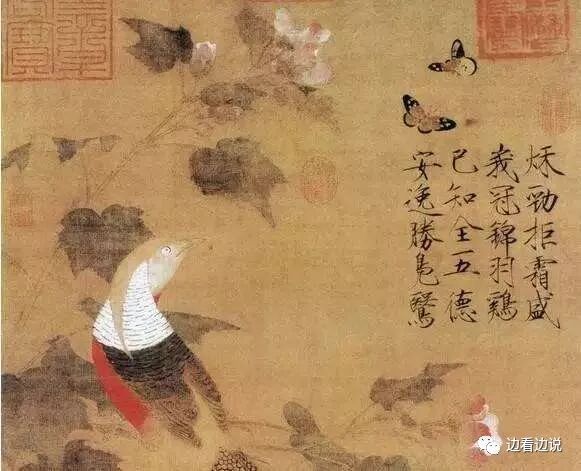 秋勁拒霜盛
峩冠錦羽鷄
已知全五德
安逸勝鳧鷖
边看边说